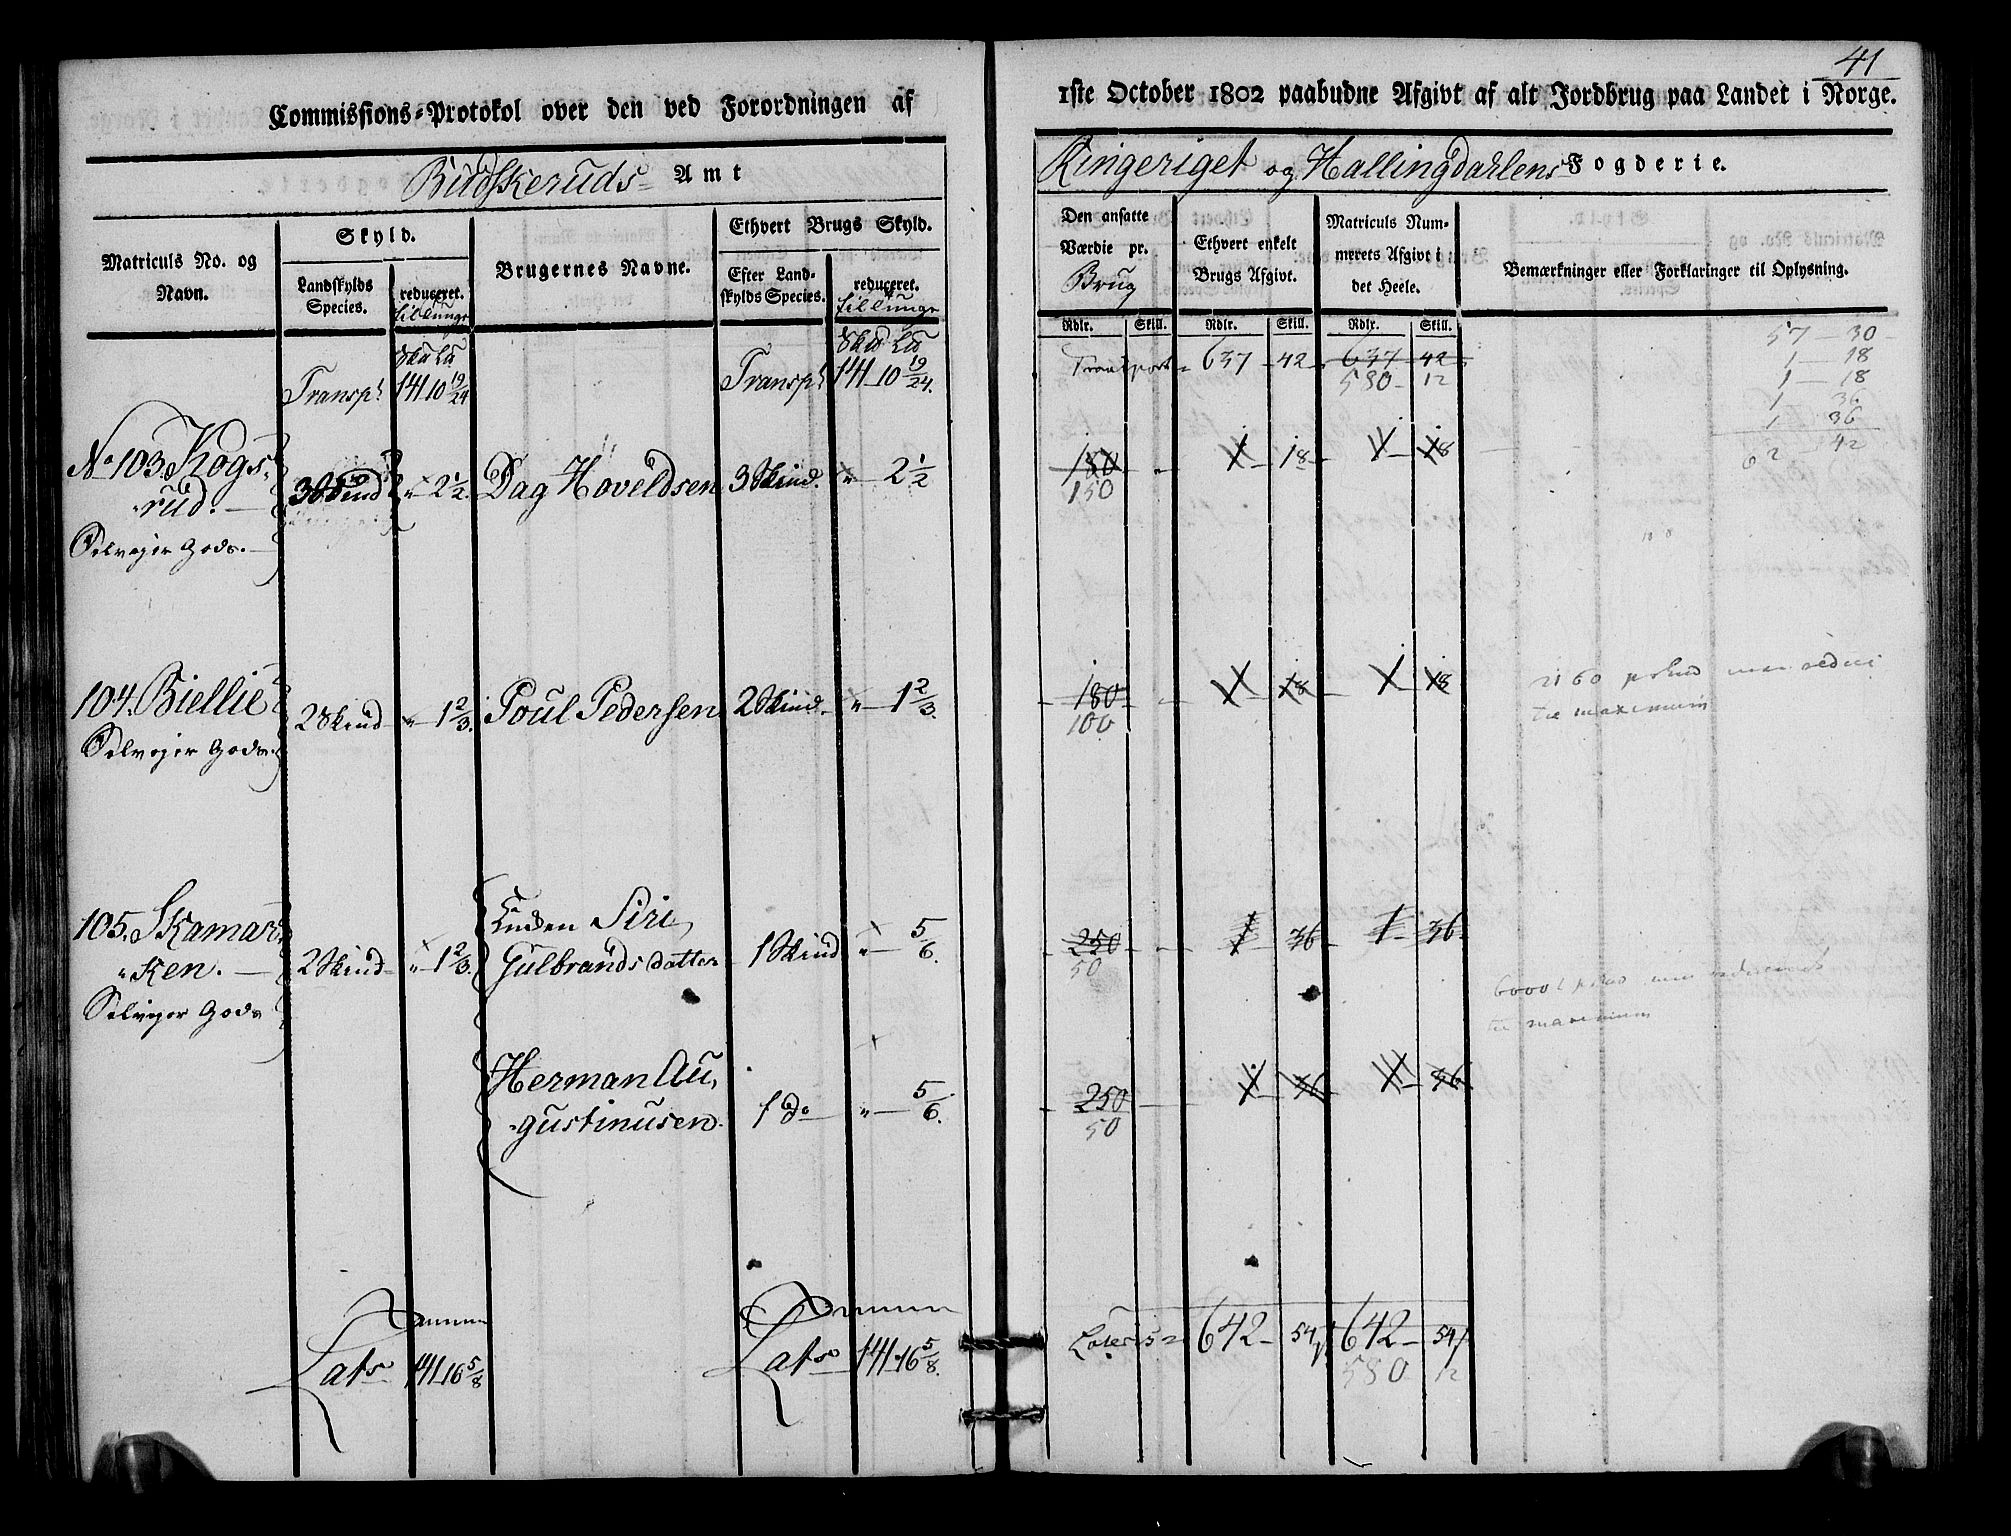 41
Commissions-Protokol over den ved Forordningen af
1ste October 1802 paabudne Afgivt af alt Jordbrug paa Landet i Norge.
Budskeruds Amt
Ringeriget og Hallingdahlens Fogderie.
Matriculs No. og Navn.
Skyld.
Landskylds Species.
reduceret.
Brugernes Navne.
Ethvert Brugs Skyld.
Efter Land-
skylds Species.
reduceret.
Den ansatte
Værdie pr.
Brug
Ethvert enkelt
Brugs Afgivt.
Matriculs Num-
merets Afgivt i
det Heele.
Bemærkninger eller Forklaringer til Oplysning.
Rdlr. Skill. Rdlr. Skill. Rdlr. Skill.
Transpt 141 10 19/24 Transpt 141 10 19/24. Transport 637 42 637 42
580 12
57 30
1 18
1 18
1 36
1 36
62 42
No 103. Kogs-
rud. 3 Skind " 2 1/2. Dag Hoveldsen 3 Skind. " 2 1/2 180 1 18 1 18
150
Selvejer Gods.
104. Biellie 2 Skind " 1 2/3. Poul Pedersen 2 Skind " 1 2/3. 180 1 18 1 18
100
Selvejer Gods.
2160 pskind
til maximum
105. Skamar-
ken. 2 Skind " 1 2/3.
Enken Siri
Gulbrandsdatter 1 Skind " 5/6. 250 1 36 1 36
50
Selvejer Gods
til maximum
Herman Au,
gustinusen. 1 do " 5/6. 250 1 36 1 36
50
Summa Summa
Lats 141 16 5/8 Lats 141 16 5/8. Lateris 642 54 642 54
580 12